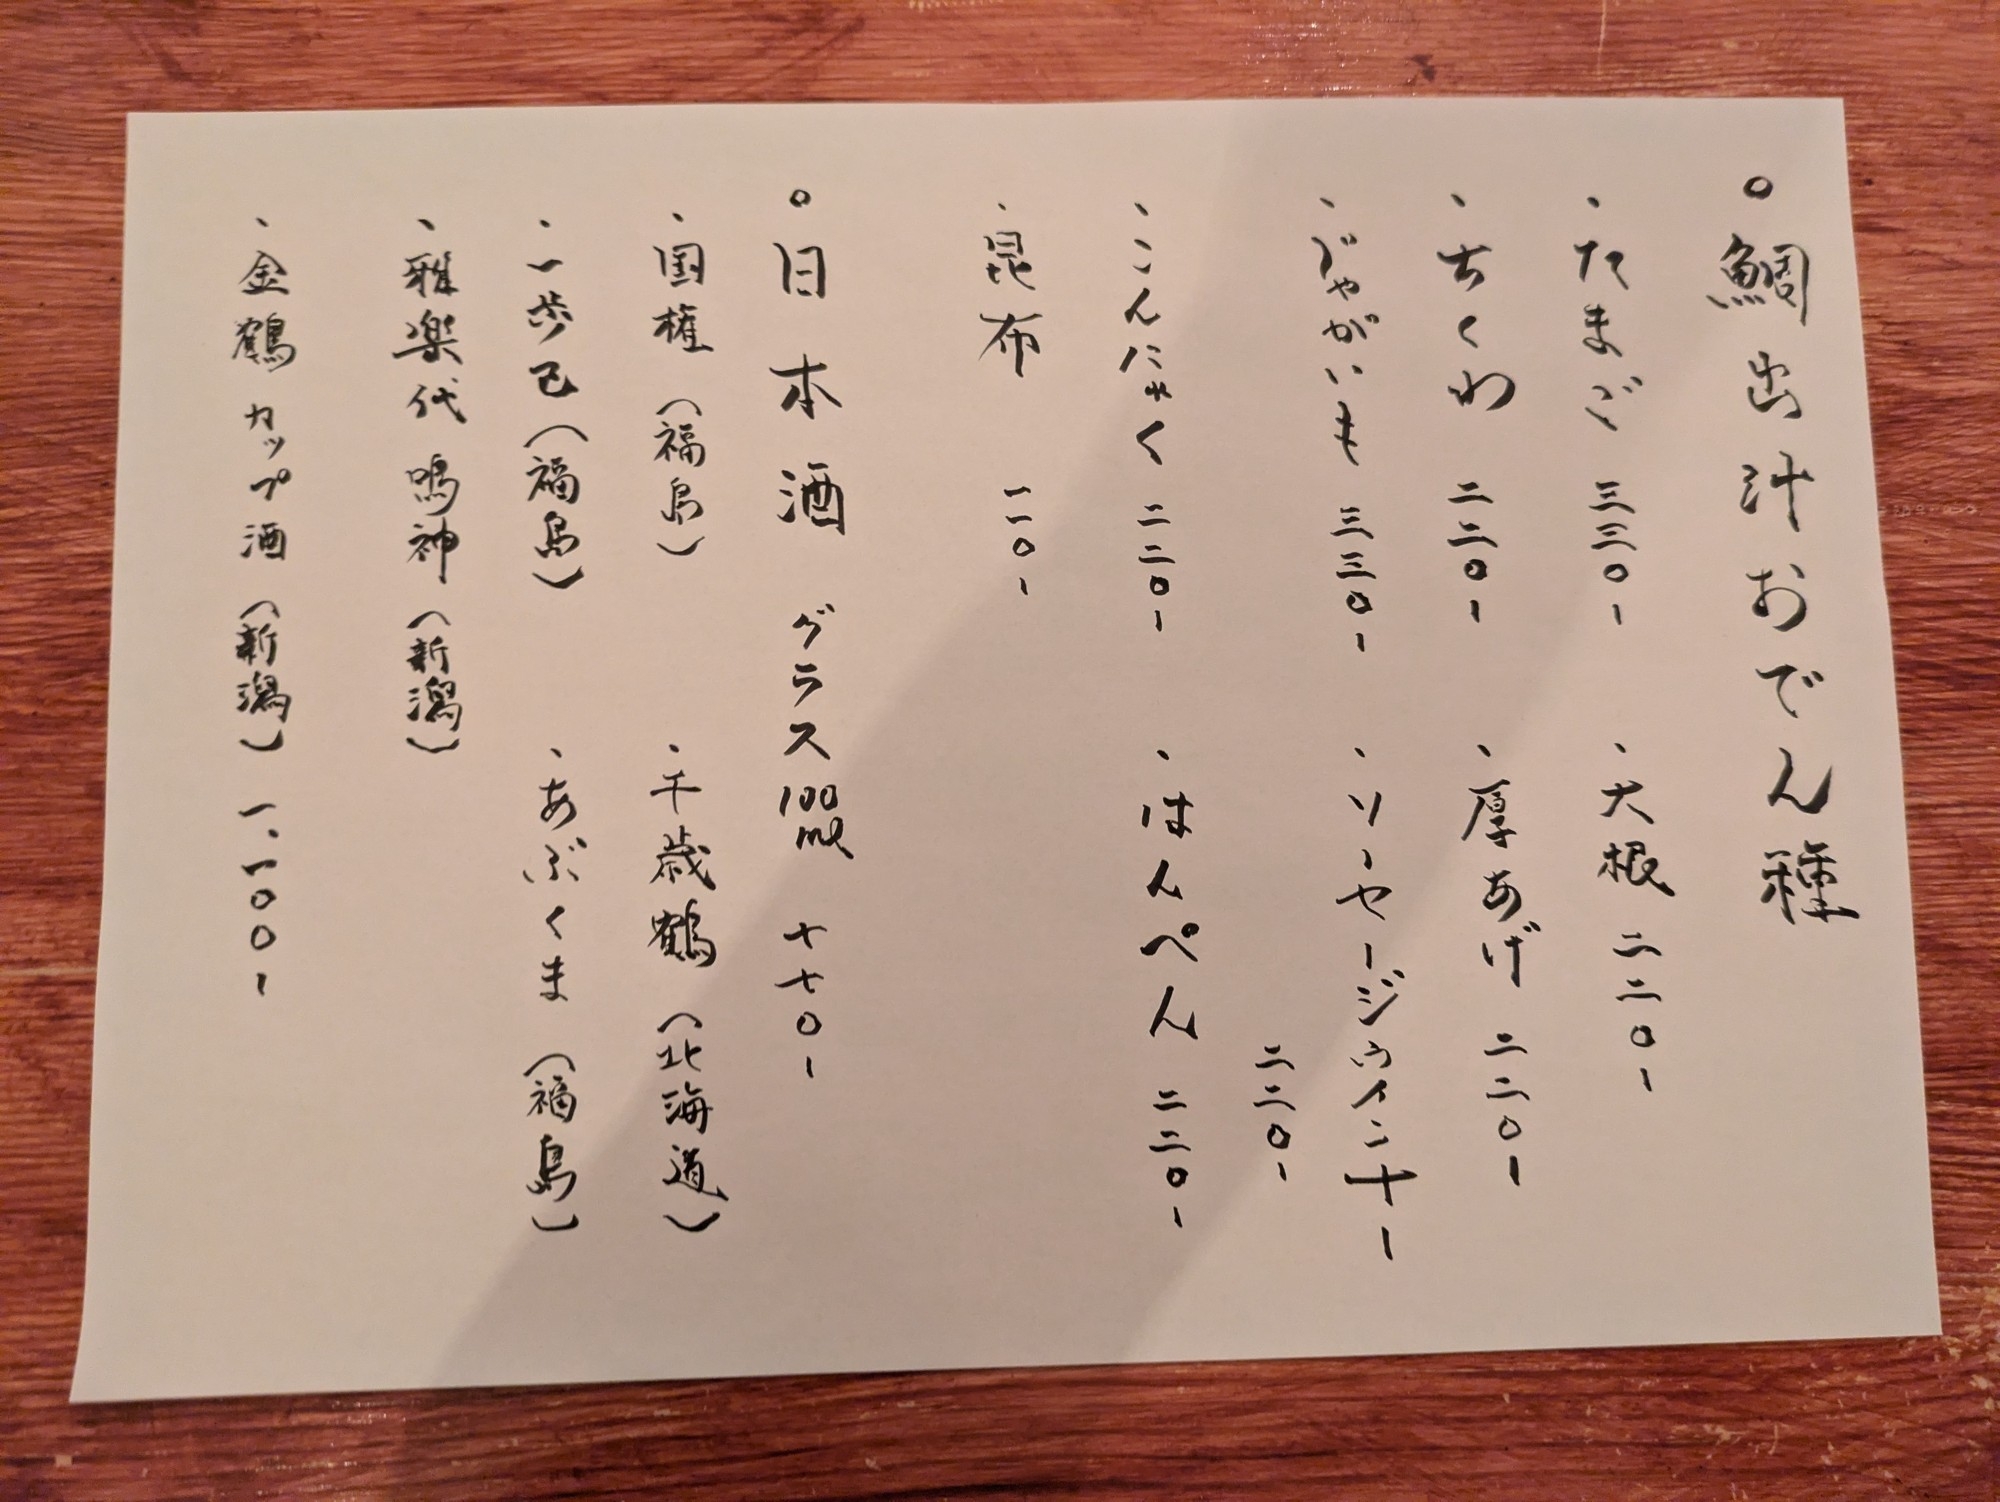 ○鯛出汁おでん種
・たまご 三三〇- ・大根 二二〇-
・ちくわ 二二〇- ・厚あげ 二二〇-
・じゃがいも 三三〇- ・ソーセージウインナー
二二〇-
・こんにゃく 二二〇- ・はんぺん 二二〇-
・昆布 一一〇-
○日本酒 グラス100ml 七七〇-
・国権(福島) ・千歳鶴(北海道)
・一歩己(福島) ・あぶくま(福島)
・雅楽代 鳴神(新潟)
・金鶴 カップ酒(新潟) 一、一〇〇-